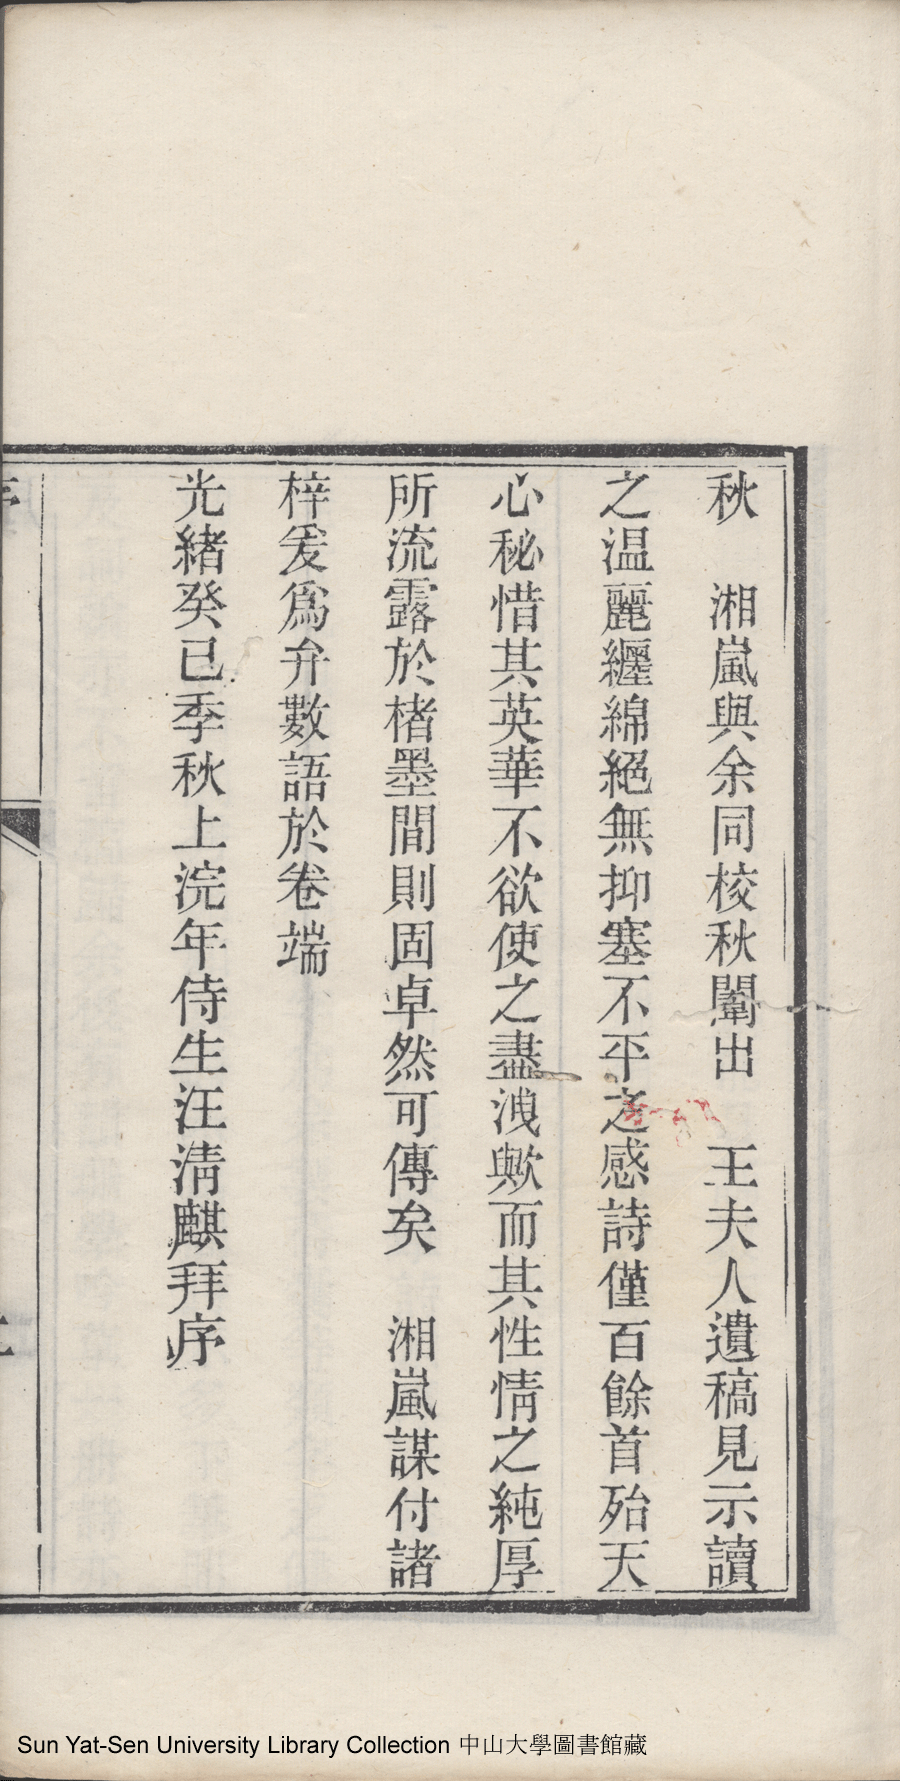 秋　湘嵐與余同校秋闈出　王夫人遺稿見示讀
之温麗纒綿絕無抑塞不平之感詩僅百餘首殆天
心秘惜其英華不欲使之盡洩歟而其性情之純厚
所流露於楮墨間則固卓然可傳矣　湘嵐謀付諸
梓爰爲弁數語於卷端
光緒癸巳季秋上浣年侍生汪淸麒拜序
Sun Yat-Sen University Library Collection 中山大學圖書館藏